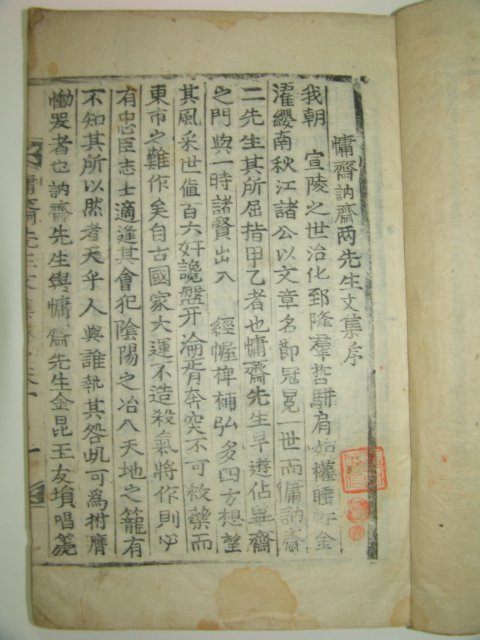 慵齋訥齋兩先生文集序
我朝 宣陵之世治化郅隆羣哲騈肩如權睡軒金
濯纓南秋江諸公以文章名節冠冕一世而慵訥齋
二先生其所屈指甲乙者也慵齋先生早遊佔畢齋
之門與一時諸賢出入 經幄裨補弘多四方想望
其風采世値百六奸讒盤牙淪胥奔突不可救藥而
東市之難作矣自古國家大運不造殺氣將作則必
有忠臣志士適逢其會犯陰陽之冶入天地之籠有
不知其所以然者天乎人與誰執其咎吼可爲拊膺
慟哭者也訥齋先生與慵齋先生金昆玉友塤唱篪
慵齋先生文集